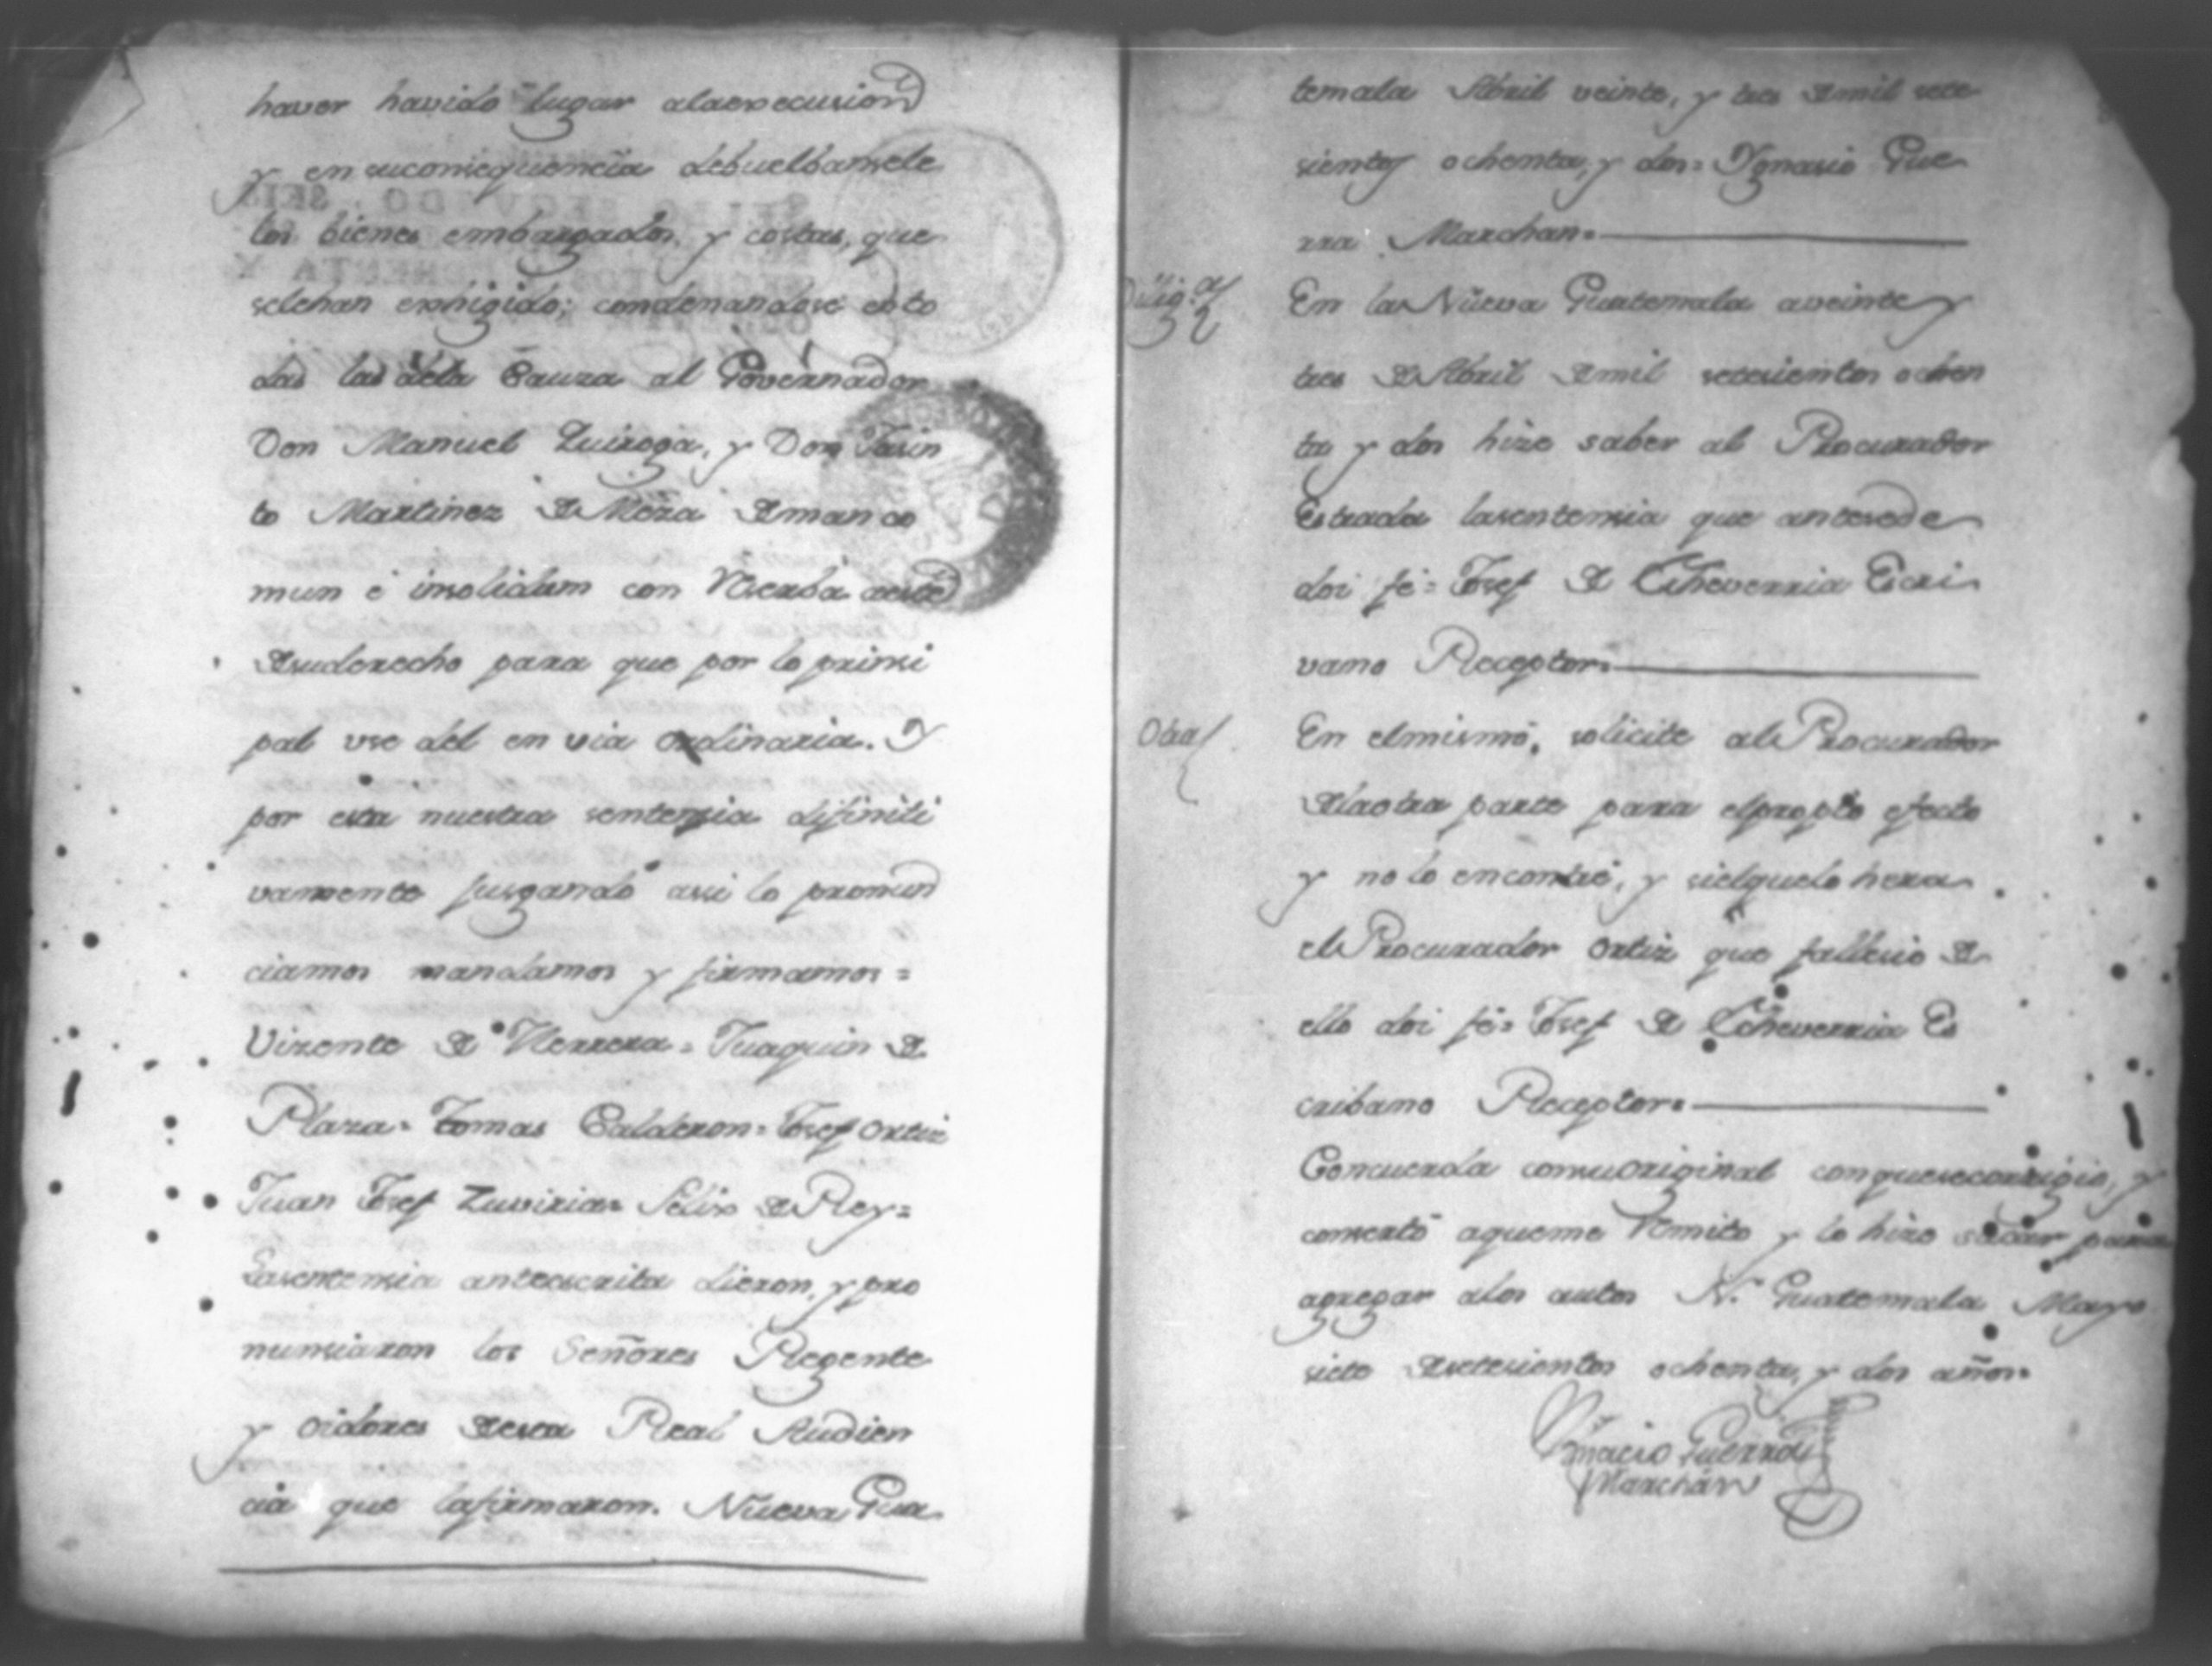 haver havido lugar alaexecusion
y en suconsequencia debuelbansele
los bienes embargados, y costas, que
selehan exhigido; condenandose ento
das las dela Cauza al Governador
Don Manuel Quiroga, y Don Jasin
to Martinez de Meza de man co
mun é insolidum con Reserba aeste
desuderecho para que por lo prinsi
pal use del en via ordinaria. Y
por esta nuestra sentensia difiniti
vamente jusgando assi lo pronun
ciamos mandamos y firmamos =
Vizente de Herrera = Juaquin de
Plaza = Tomas Calderon = Josef Ortiz
Juan Josef Zuviria = Félix de Rey =
Lasentensia antecscrita dieron, y pro
nunsiaron los Señores Regente
y oidores desta Real Audien
cia que lafirmaron. Nueva Gua
temala Abril veinte, y tres de mil sete
sientos ochenta, y dos = Ygnasio Gue
rra Marchan =
Dilig.a
En la Nueva Guatemala aveinte y
tres de Abril de mil setesientos ochen
ta y dos hize saber al Procurador
Estrada lasentensia que antesede
doi fé = Josef de Echeverria Escri
vano Receptor =
Otra
En elmismo, solicite al Procurador
delaotra parte para elpropio efecto
y no lo encontré, y sielquelo hera
el Procurador Ortiz que fallesio de
ello doi fé = Josef de Echeverria Es
cribano Receptor =
Concuerda consuoriginal conquesecorrigio, y
consertó aqueme Remito y lo hize sacar para
agregar alos autos N. Guatemala Mayo
siete desetesientos ochenta, y dos años =
Ignacio Guerra
Marchán